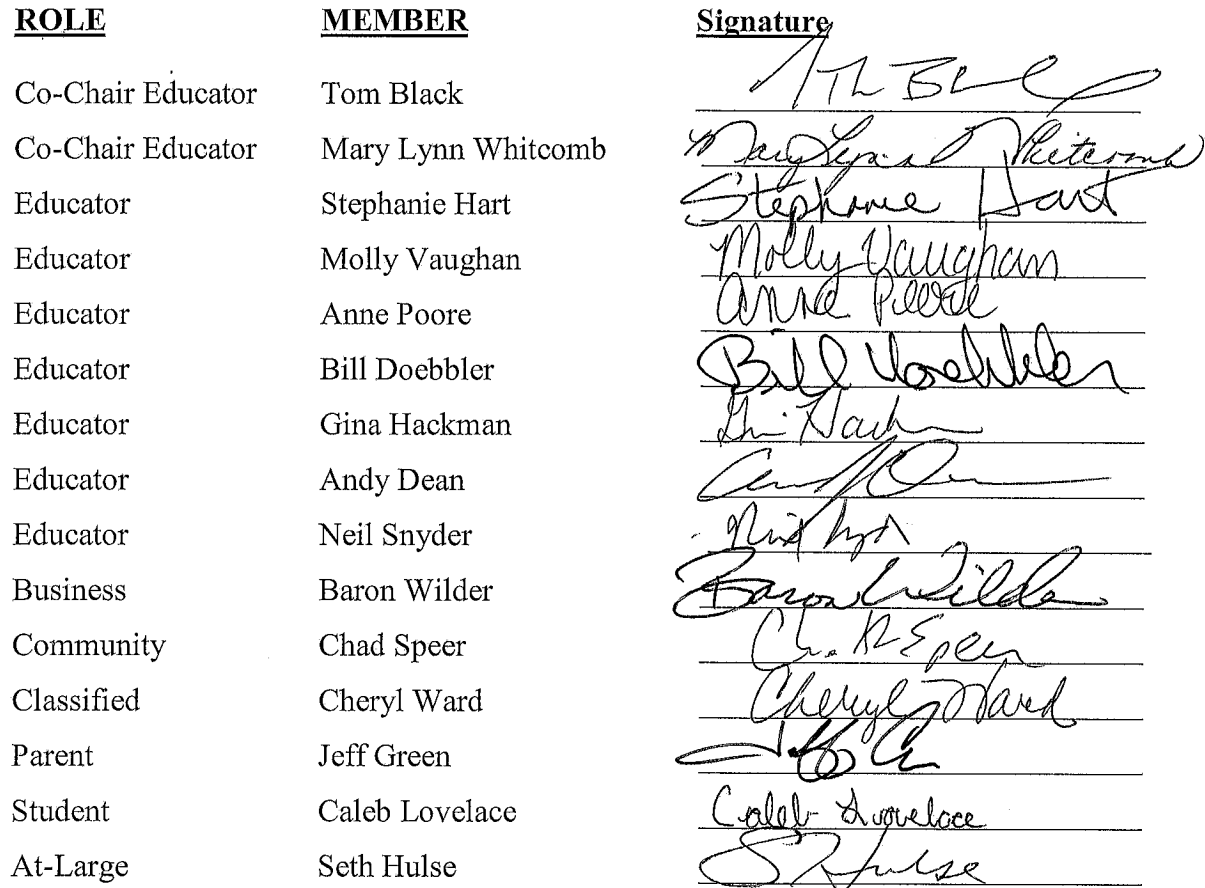 ROLE MEMBER Signature
Co-Chair Educator Tom Black
Co-Chair Educator Mary Lynn Whitcomb Mary Lynn Whitcomb
Educator Stephanie Hart Stephanie Hart
Educator Molly Vaughan Molly Vaughan
Educator Anne Poore Anne
Educator Bill Doebbler Bill Doebbler
Educator Gina Hackman
Educator Andy Dean
Educator Neil Snyder
Business Baron Wilder Baron Wilder
Community Chad Speer Speer
Classified Cheryl Ward Cheryl Ward
Parent Jeff Green
Student Caleb Lovelace Caleb Lovelace
At-Large Seth Hulse S Hulse